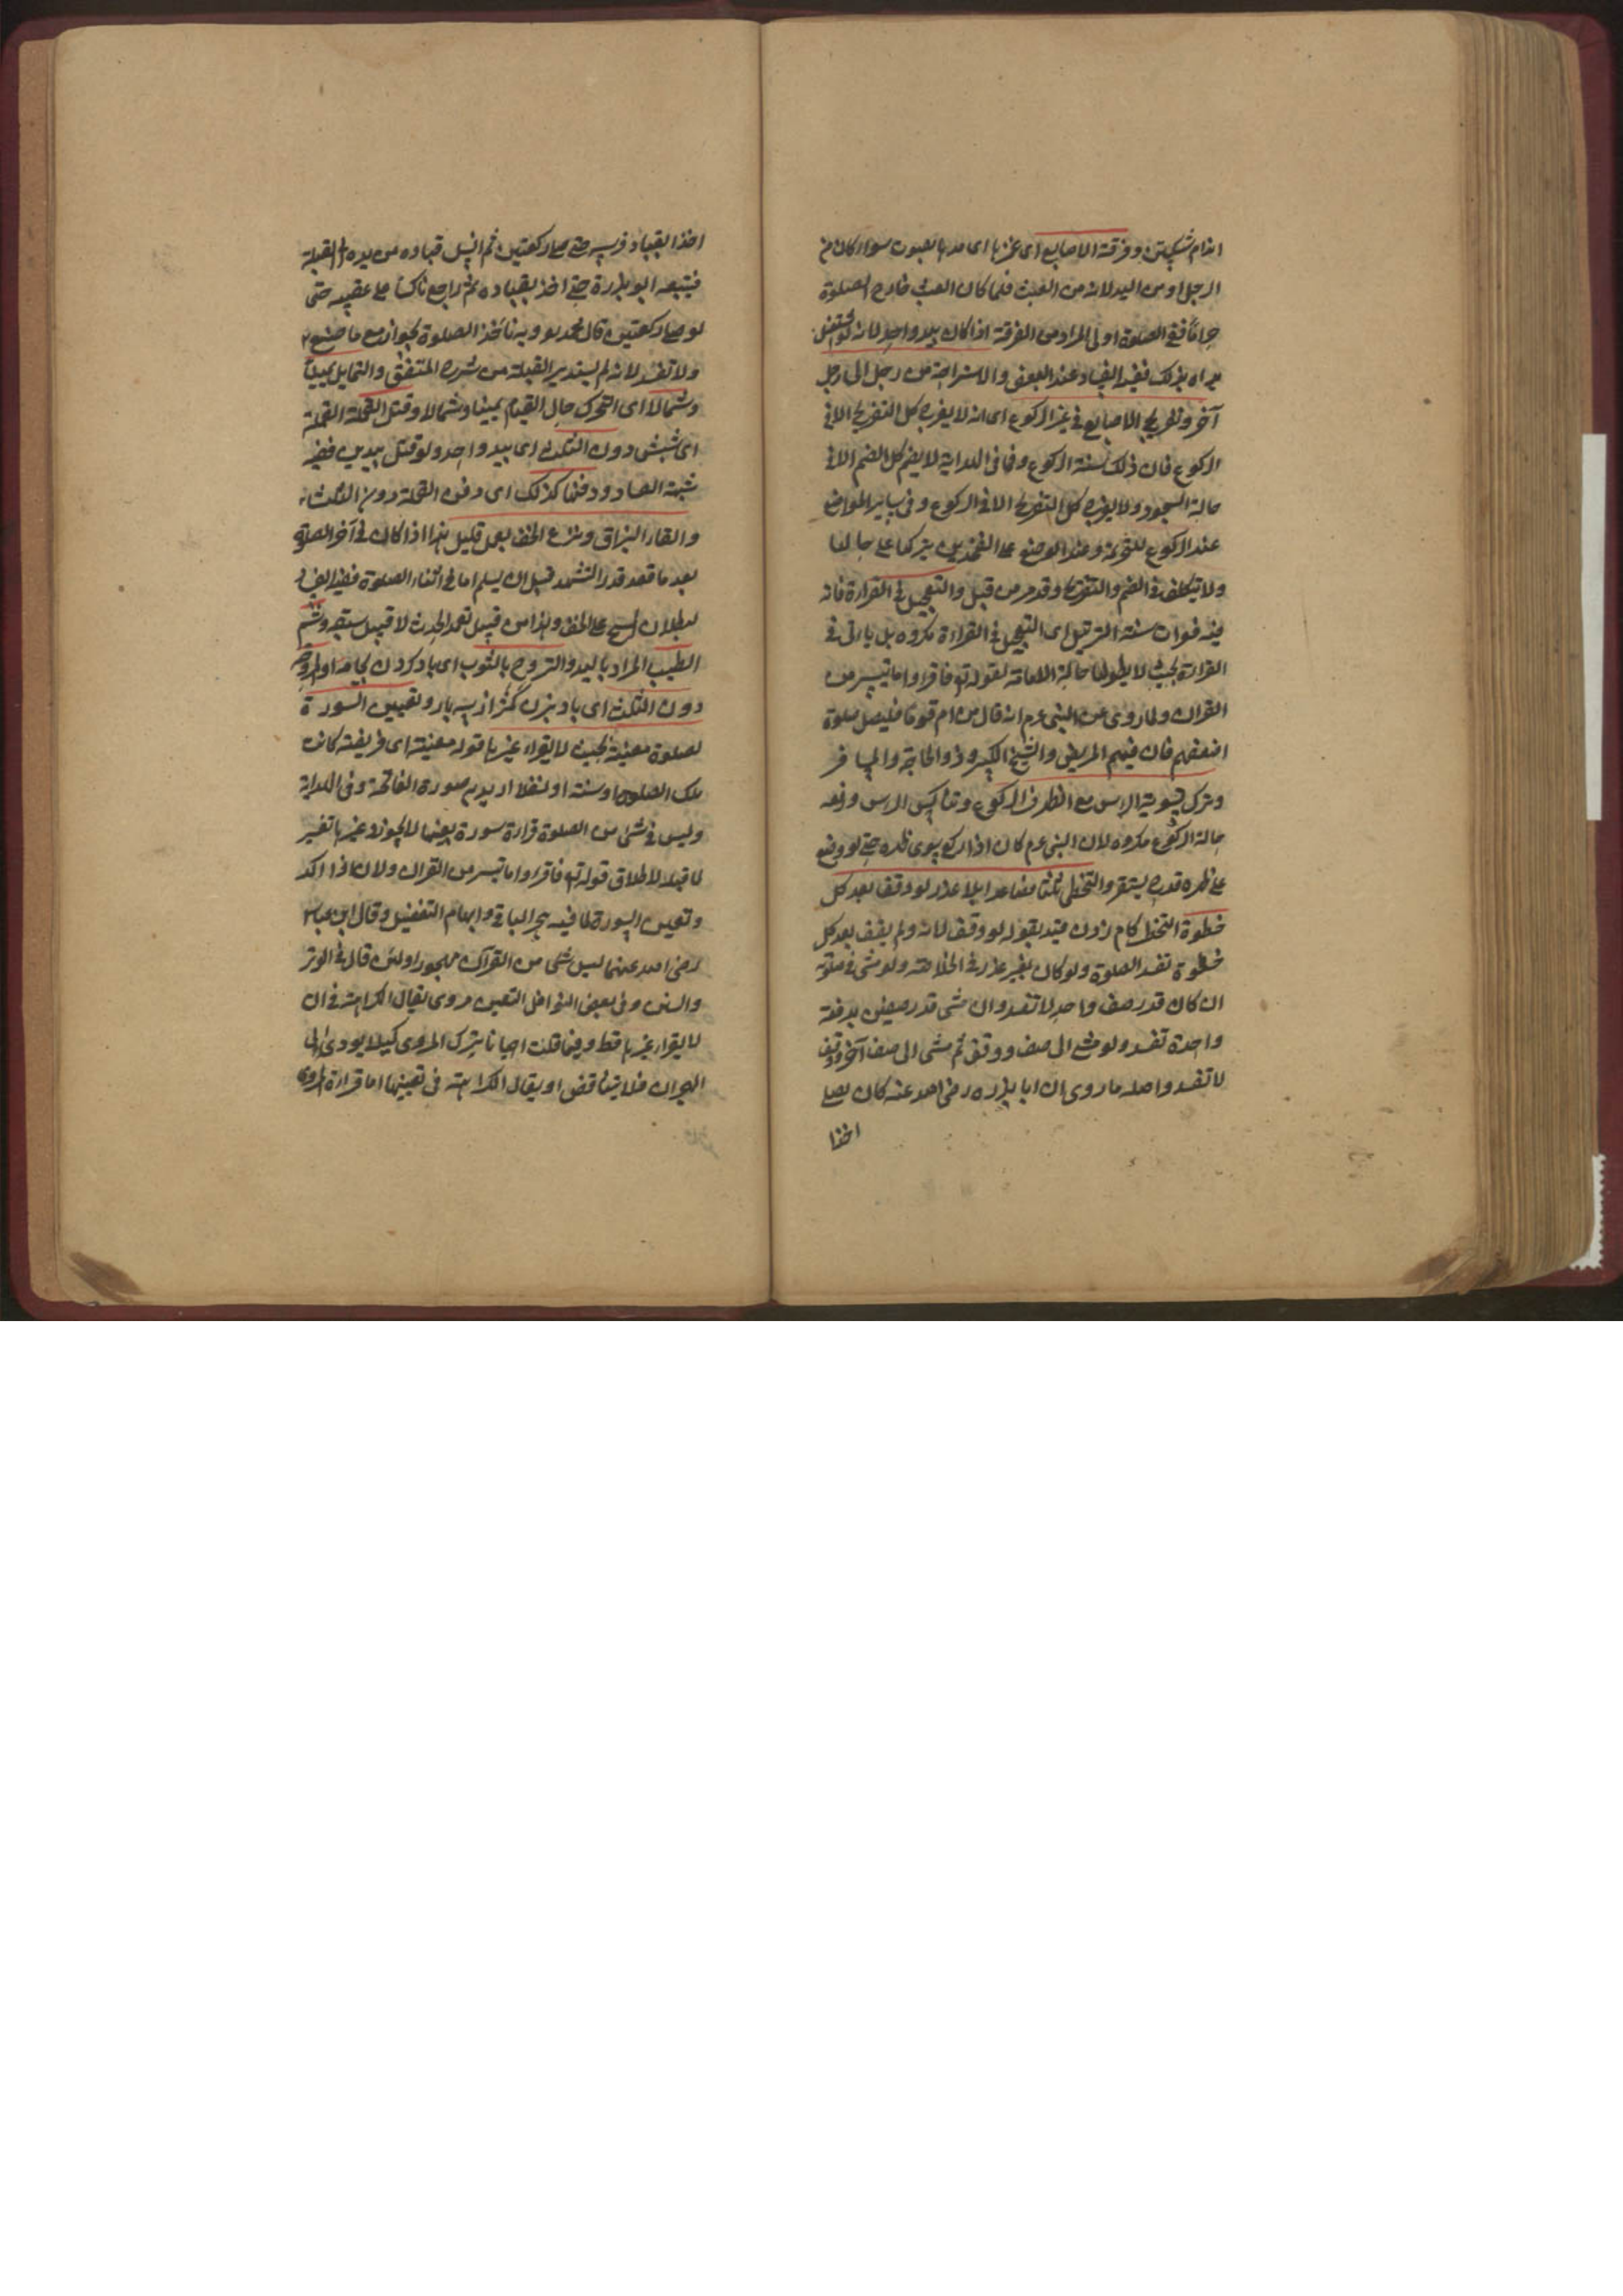 اندام شكستن وفرقعة الاصابع اى غمزها اى مدها بصوت سواء كان من
الرجل او من اليد لانه من العبث فلما كان العبث خارج الصلوة
حراما ففى الصلوة اولى المراد من الفرقعة اذا كان بيد واحد لانه لو اشتغل
يداه بذلك تفسد الصلوة عند البعض والاستراحة من رجل الى رجل
آخر وتفريج الاصابع فى غير الركوع اى انه لا يفرج كل التفريج الا فى
الركوع فان ذلك سنة الركوع وفى الهداية لا يضم كل الضم الا فى
حالة السجود ولا يفرج كل التفريج الا فى الركوع وفى سائر المواضع
عند الركوع وعند الوضع على الفخذين يتركها على حالها
ولا يتكلف فى الضم والتفريج وقد مر من قبل والتعجيل فى القراءة فانه
فيه فوات سنة الترتيل اى التعجيل فى القراءة مكروه بل يأتى فى
القراءة بحيث لا يطولها حالة الامامة لقوله تع فاقرءوا ما تيسر من
القران ولما روى عن النبى عم انه قال من ام قوما فليصل صلوة
اضعفهم فان فيهم المريض والشيخ الكبير وذو الحاجة والمسافر
وترك تسوية الراس مع الظهر فى الركوع وتنكيس الراس ورفعه
حالة الركوع مكروه لان النبى عم كان اذا ركع يسوى ظهره حتى لو وضع
على ظهره قدح يستقر والتخطى ثلثا فصاعدا بلا عذر لو وقف بعد كل
خطوة التخطى كام زدن قيد بقوله لو وقف لانه ولم يقف بعد كل
خطوة تفسد الصلوة ولو كان بغير عذر فى الخلاصة ولو مشى فى صلوته
ان كان قدر صف واحد لا تفسد وان مشى قدر صفين بدفعة
واحدة تفسد ولو مشى الى صف ووقف ثم مشى الى صف آخر ووقف
لا تفسد واصله ما روى ان ابا برزه رضى الله عنه كان يصلى
اخذا
اخذا بقياد فرسه حتى صلى ركعتين ثم انسل قياده من يده الى القبلة
فتبعه ابو برزة حتى اخذ بقياده ثم راجع ناكصا على عقبيه حتى
لو صلى ركعتين قال محمد وبه نأخذ الصلوة تجوز مع ما صنع
ولا تفسد لانه لم يستدبر القبلة من شرح المتفق والتمايل يمينا
وشمالا اى التحرك حال القيام يمينا وشمالا وقتل القملة القملة
اى شپش دون الثلث اى بيد واحد ولو قتل بيدين ففيه
شبهة الفساد ودفنها كذلك اى دفن القملة دون الثلث
والقاء البزاق ونزع الخف بعمل قليل هذا اذا كان فى آخر الصلوة
بعد ما قعد قدر التشهد قبل ان يسلم اما فى اثناء الصلوة فيفسد
لبطلان المسح على الخف وهذا من قبيل تعمد الحدث لا قبيل سبقه وشم
الطيب المراد باليد والتروح بالثوب اى باد كردن بجامه او المروحة
دون الثلث اى باد بزن كمتر از سه بار وتعيين السورة
لصلوة معينة بحيث لا يقراء غيرها قوله معينة اى فريضة كانت
تلك الصلوة او سنة او نفلا اريد به سورة الفاتحة وفى الهداية
وليس فى شئ من الصلوة قراءة سورة بعينها لا يجوز غيرها
لاطلاق قوله تع فاقرءوا ما تيسر من القران ولان اذا اكد
وتعين السورة لما فيه هجر الباقى وابهام التفضيل وقال ابن عباس
رضى الله عنهما ليس شئ من القرآن مهجورا ولئن قال فى الوتر
والسنن وفى بعض النوافل التعيين مروى يقال الكراهة فى ان
لا يقراء غيرها قط وفيما قلت احيانا يترك المروى كيلا يودى الى
الهجران فلا يتناقض او يقال الكراهة فى تعيينها اما قراءة المروى